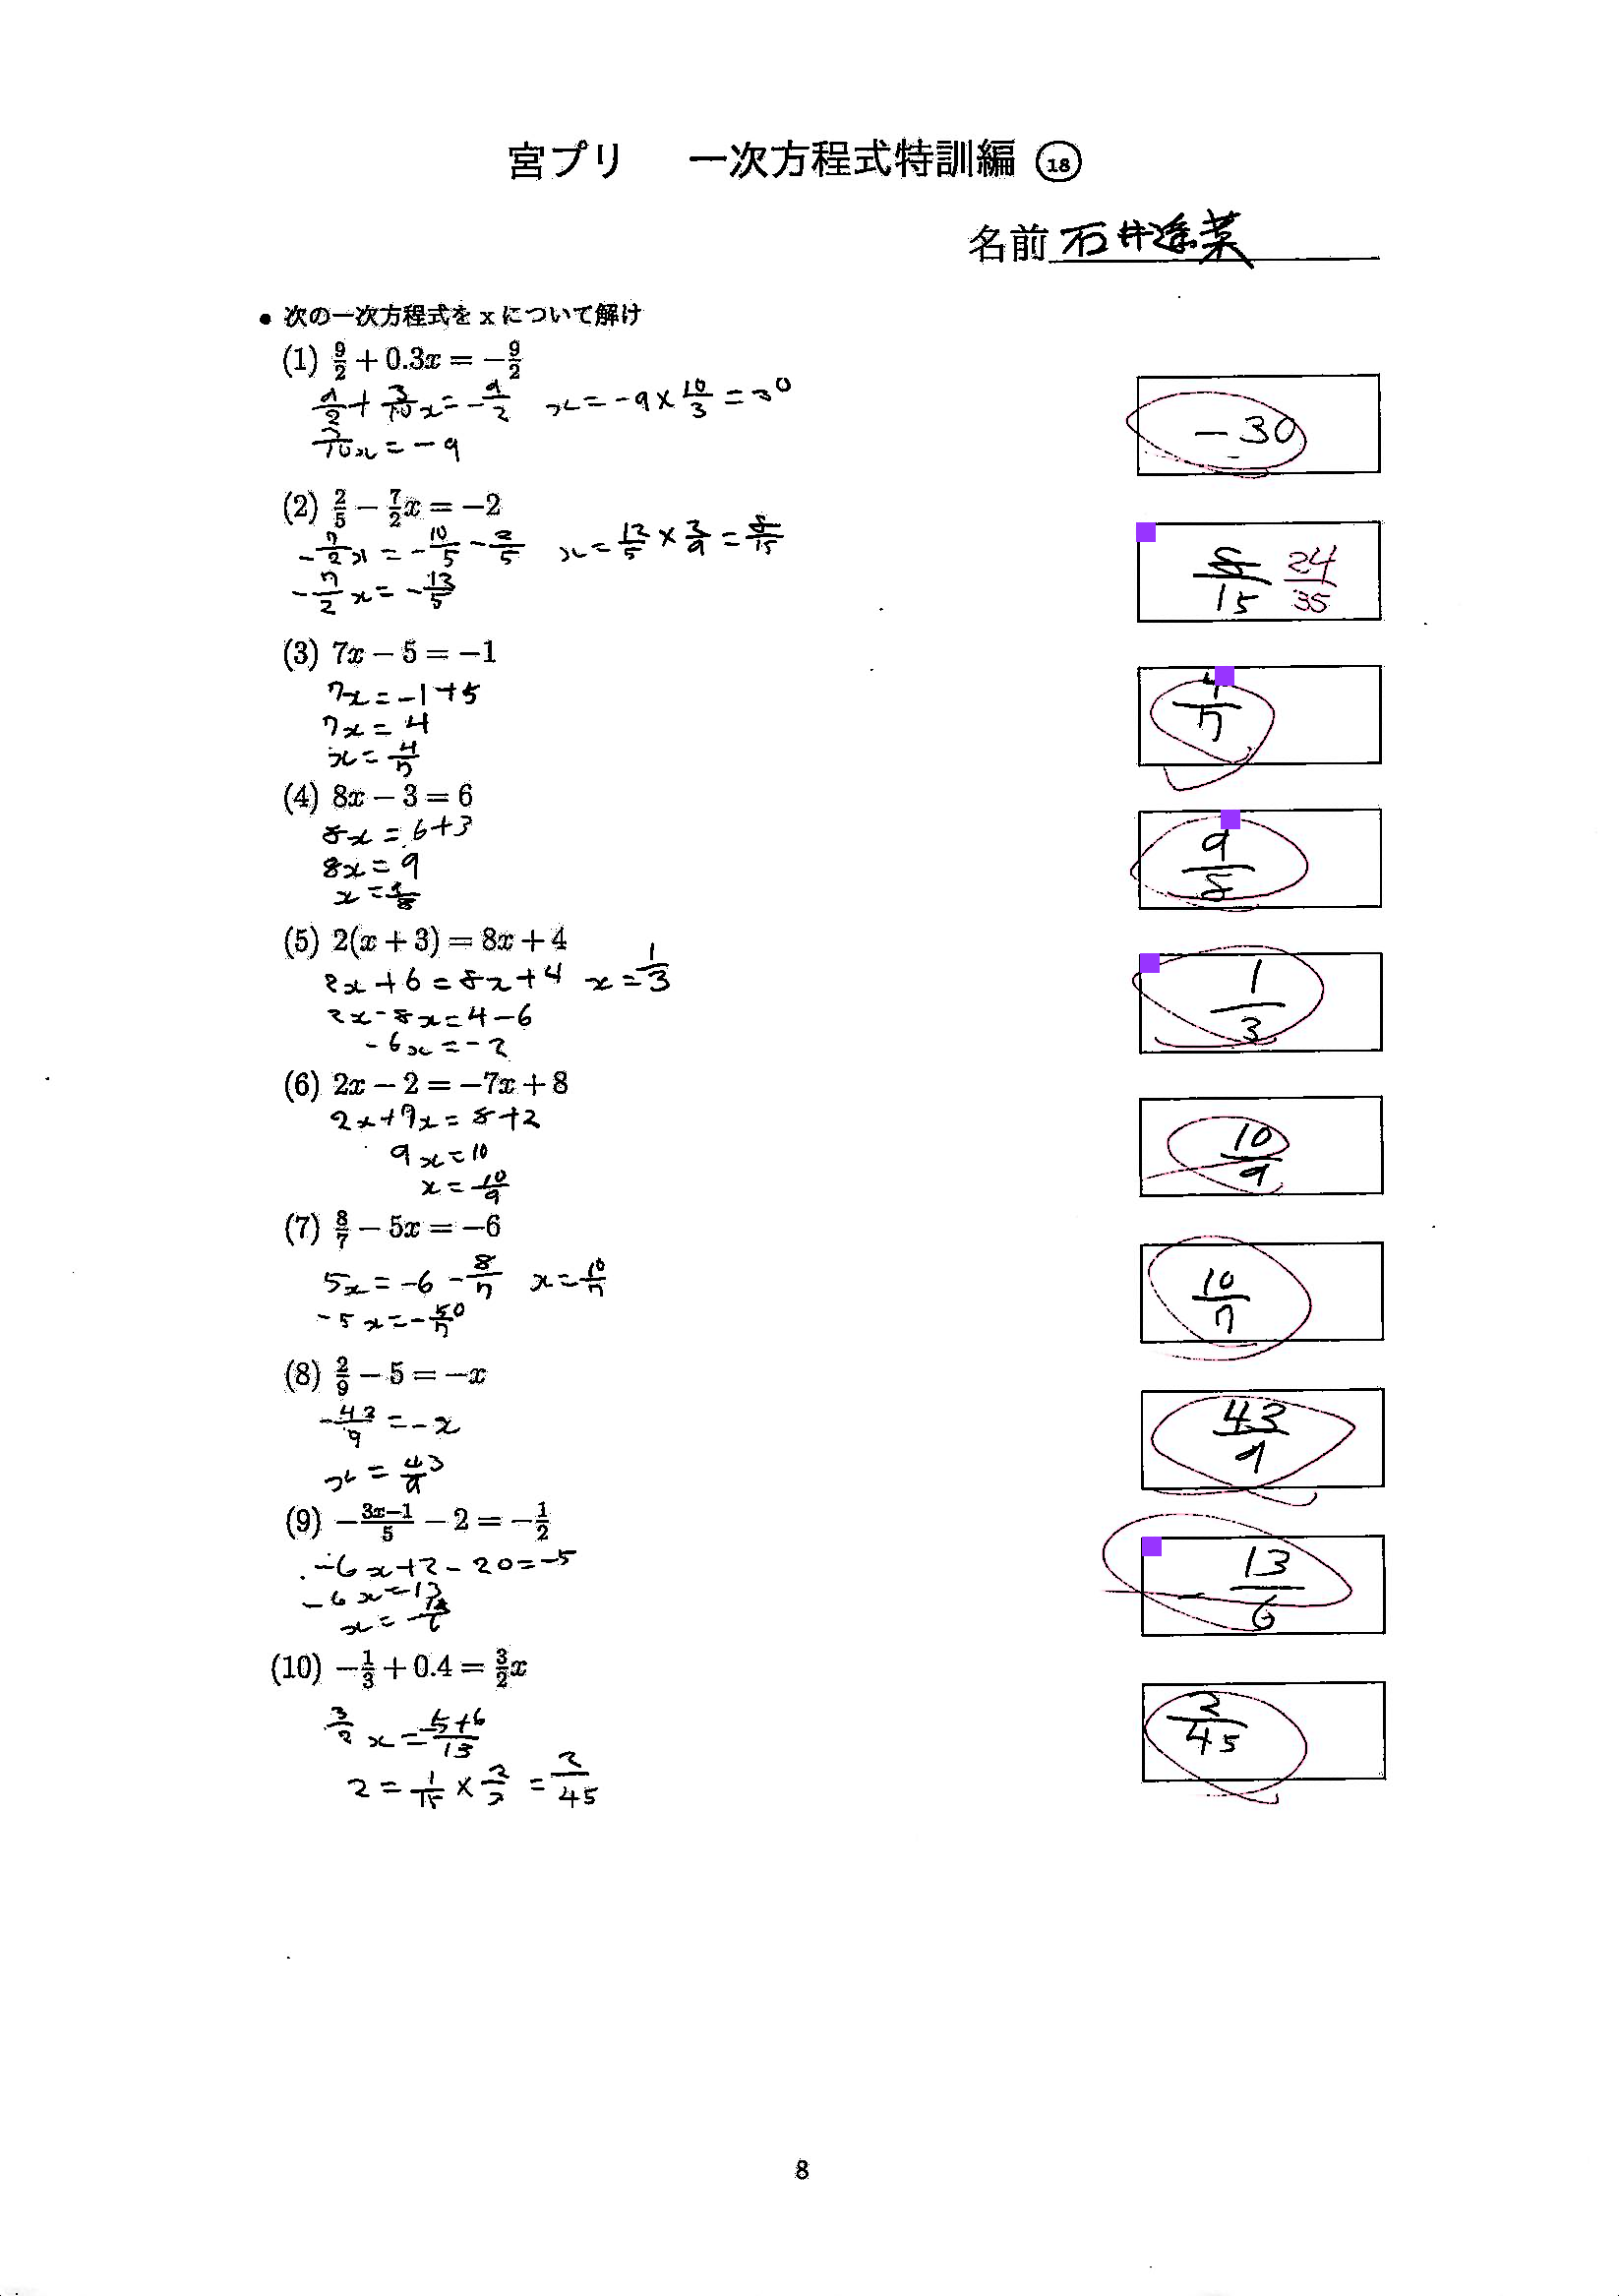 宮プリ 一次方程式特訓編 ⑱
名前 石井遥菜
● 次の一次方程式を x について解け
(1) 9/2 + 0.3x = −9/2
9/2 + 3/10 x = −9/2 x = −9 × 10/3 = 30
3/10 x = −9
−30
(2) 2/5 − 7/2 x = −2
−7/2 x = −10/5 − 2/5 x = 12/5 × 2/9 = 8/15
−7/2 x = −12/5
8/15 24/35
(3) 7x − 5 = −1
7x = −1 + 5
7x = 4
x = 4/7
4/7
(4) 8x − 3 = 6
8x = 6 + 3
8x = 9
x = 9/8
9/8
(5) 2(x + 3) = 8x + 4
2x + 6 = 8x + 4 x = 1/3
2x − 8x = 4 − 6
−6x = −2
1/3
(6) 2x − 2 = −7x + 8
2x + 7x = 8 + 2
9x = 10
x = 10/9
10/9
(7) 8/7 − 5x = −6
5x = −6 − 8/7 x = 10/7
−5x = −50/7
10/7
(8) 2/9 − 5 = −x
−43/9 = −x
x = 43/9
43/9
(9) −(3x−1)/5 − 2 = −1/2
−6x + 2 − 20 = −5
−6x = 13
x = −13/6
−13/6
(10) −1/3 + 0.4 = 3/2 x
3/2 x = (−5+6)/15
x = 1/15 × 2/3 = 2/45
2/45
8